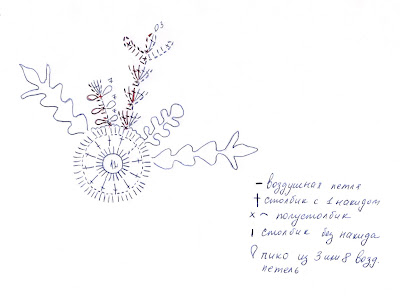 03
32
7
7
7
12
– воздушная петля
† столбик с 1 накидом
x ~ полустолбик
ı столбик без накида
пико из 3 или 8 возд.
петель